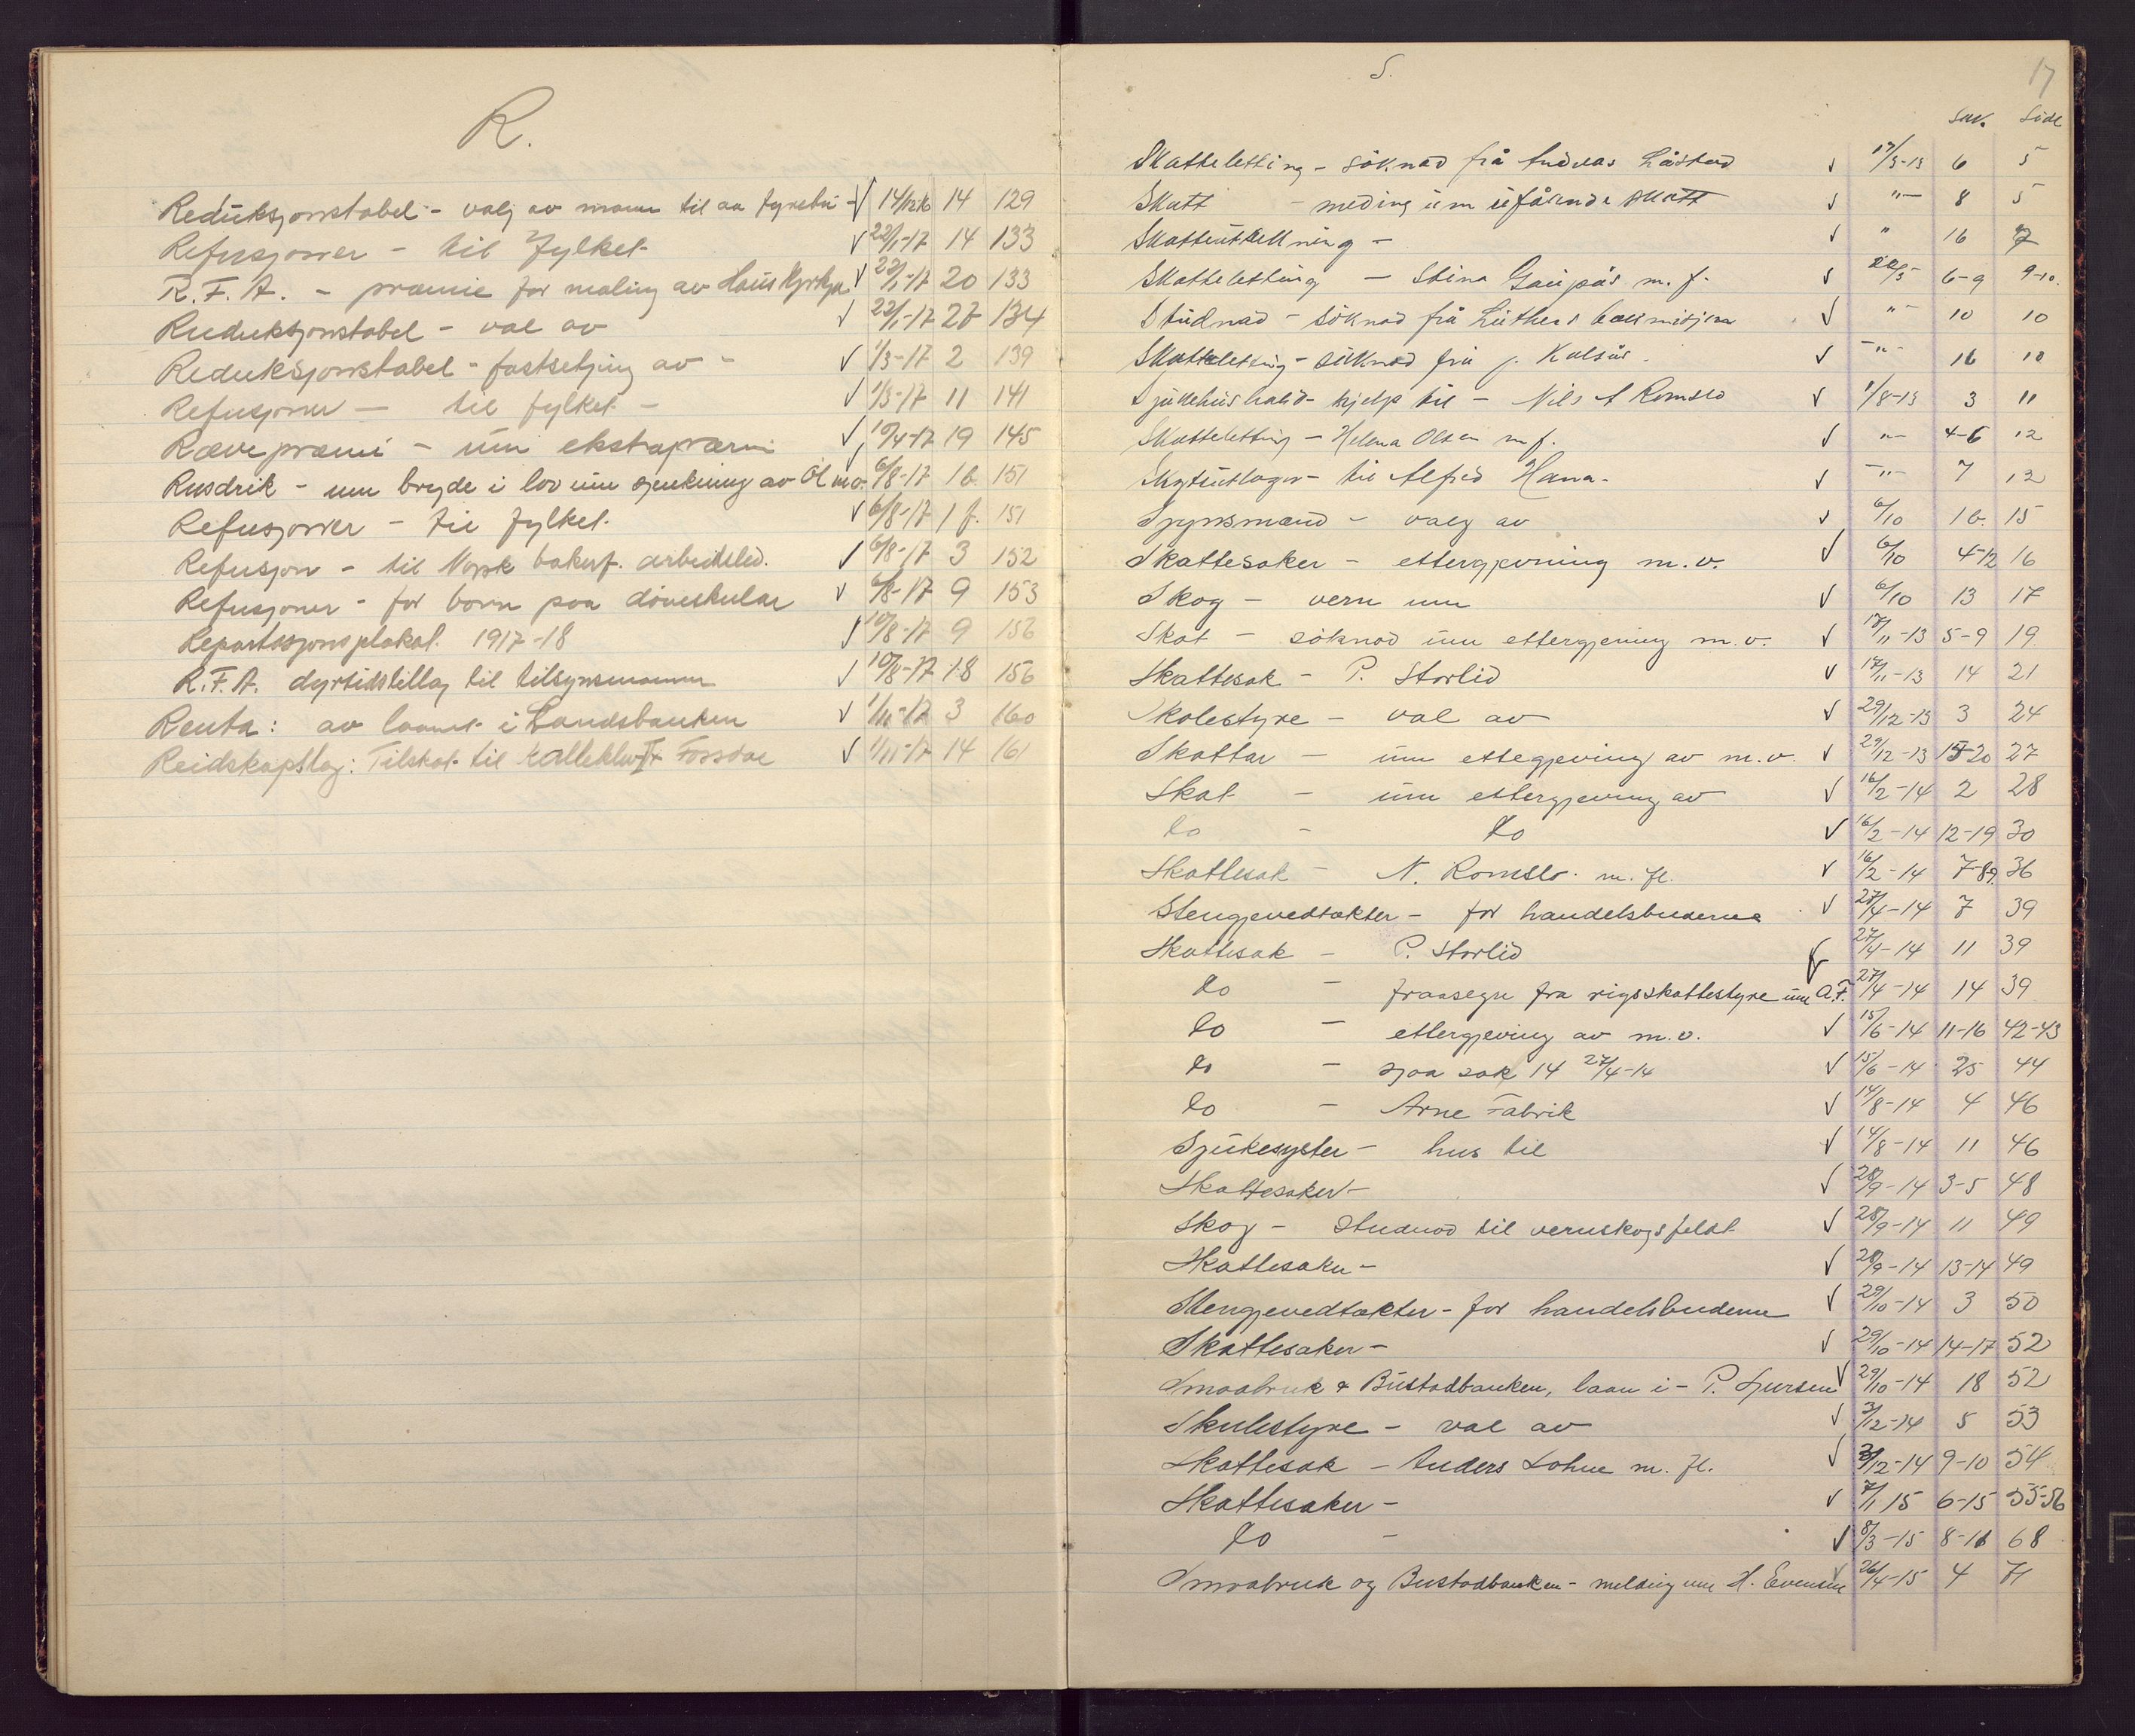 R.
Reduksjonstabel - valj av mann til aa fyrebu - √ 14/12 16 14 129
Refusjoner - til Fylket √ 22/1-17 14 133
R.F.A. - præmie for maling av Haus Kyrkja √ 22/1-17 20 133
Reduksjonstabel - val av √ 22/1-17 27 134
Reduksjonstabel - fastsetjing av - √ 1/3-17 2 139
Refusjoner - til fylket - √ 1/3-17 11 141
Ræve præmi - um ekstrapræmi √ 19/4-17 19 145
Rusdrik - um bryde i lov um sjenkning av Øl m.v. 6/8-17 1b. 151
Refusjoner - til fylket √ 6/8-17 1 f. 151
Refusjon - til Norsk bakerf. arbeidsled. √ 6/8-17 3 152
Refusjoner - for born paa døveskular √ 6/8-17 9 153
Repartisjonsplakat. 1917-18 √ 10/8-17 9 156
R.F.A. dyrtidstillag til tilsynsmannen √ 10/8-17 18 156
Renta: av laanet i Landsbanken √ 1/11-17 3 160
Reidskapslag: Tilskot til Kalleklev & Fossdal √ 1/11-17 14 161
S. 17
Sak. Side
Skatteletting - söknad frå Andreas Låstad √ 17/3-13 6 5
Skatt - melding um uføra­nde skatt √ "- 8 5
Skatteutskilning - √ " 16 7
Skatteletting - Stina Gaupås m. f. √ 22/5- 6-9 9-10.
Studnad - söknad frå Luthers √ "- 10 10
Skatteletting - söknad frå J. Kalsås. √ -"- 16 10
Sjukehushald- hjelp til - Nils A Romslo √ 1/8-13 3 11
Skatteletting - Helena Olsen m f. √ "- 4-6 12
til Alfred Hana. √ -"- 7 12
Synsmænd - valg av √ 6/10 1b. 15
Skattesaker - ettergjevning m.v. √ 6/10 4-12 16
Skog - vern um √ 6/10 13 17
Skat - söknad um ettergjeving m.v. √ 17/11-13 5-9 19
Skattesak - P. Storlid √ 17/11-13 14 21
Skolestyre - val av √ 29/12-13 3 24
Skattar - um ettegjeving av m.v. √ 29/12-13 15-20 27
Skat - um ettergjeving av √ 16/2-14 2 28
Do - Do √ 16/2-14 12-19 30
Skattesak - N. Romslo. m. fl. √ 16/2-14 7-89. 36
Stengjevedtækter - for handelsbuderne √ 27/4-14 7 39
Skattesak - P. Storlid √ 27/4-14 11 39
Do - fraasegn fra rigsskattestyre um A.F. 27/4-14 14 39
Do - ettergjeving av m.v. √ 15/6-14 11-16 42-43
Do - sjaa sak 14 27/4-14 √ 15/6-14 25 44
Do - Arne Fabrik √ 14/8-14 4 46
Sjukesyster - hus til √ 14/8-14 11 46
Skattesaker - √ 28/9-14 3-5 48
Skog - Studnad til vernskogsfeldt √ 28/9-14 11 49
Skattesaker - √ 28/9-14 13-14 49
Stengjevedtækter - for handelsbuderne √ 29/10-14 3 50
Skattesaker - √ 29/10-14 14-17 52
Smaabruk & Bustadbanken, laan i - P. Sjursen √ 29/10-14 18 52
Skulestyre - val av √ 3/12-14 5 53
Skattesak - Anders Lohne m. fl. √ 3/12-14 9-10 54
Skattesaker - √ 7/1 15 6-15 55-56
Do - √ 8/3-15 8-16 68
Smaabruk og Bustadbanken - melding um H. Evensen √ 26/4-15 4 71